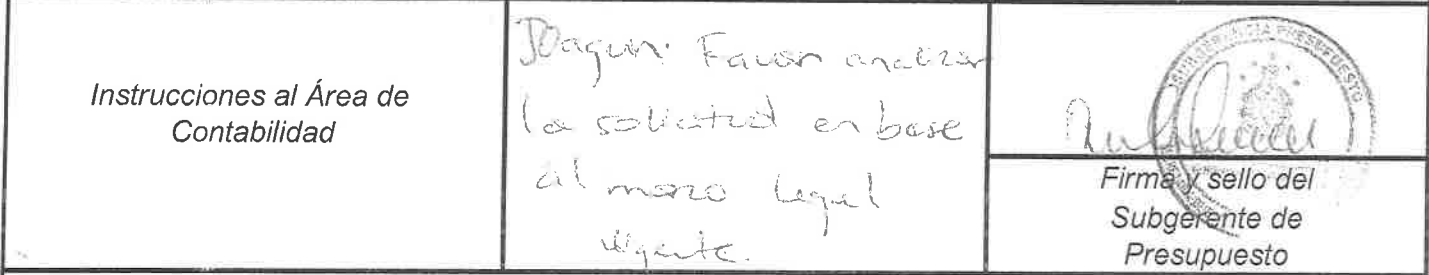 Instrucciones al Área de
Contabilidad
Joaquin: Favor analizar
la solicitud en base
al marco legal
vigente.
SUBGERENCIA PRESUPUESTO
Firma y sello del
Subgerente de
Presupuesto